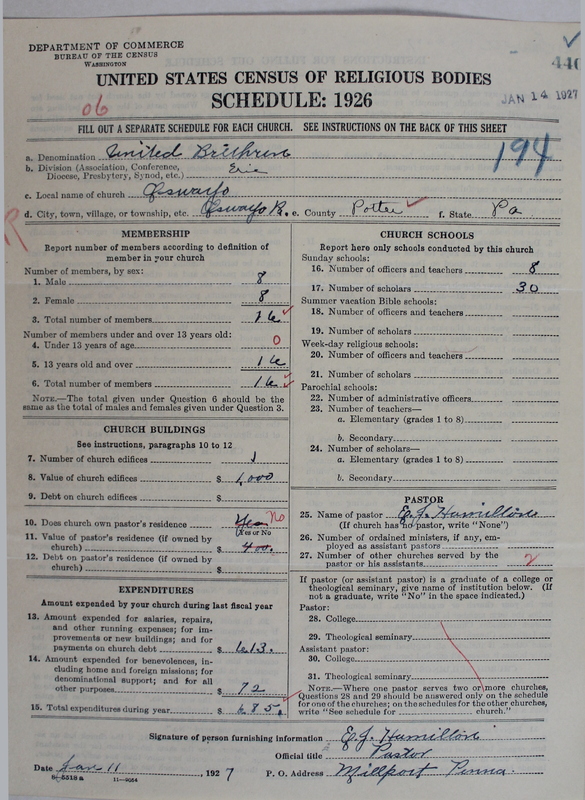 DEPARTMENT OF COMMERCE
BUREAU OF THE CENSUS
WASHINGTON
440
UNITED STATES CENSUS OF RELIGIOUS BODIES
JAN 14 1927
SCHEDULE: 1926
06
FILL OUT A SEPARATE SCHEDULE FOR EACH CHURCH. SEE INSTRUCTIONS ON THE BACK OF THIS SHEET
194
a. Denomination United Brethren
b. Division (Association, Conference, Diocese, Presbytery, Synod, etc.) Erie
c. Local name of church Oswayo
d. City, town, village, or township, etc. Oswayo B. e. County Potter f. State Pa
R
MEMBERSHIP
Report number of members according to definition of
member in your church
Number of members, by sex:
1. Male 8
2. Female 8
3. Total number of members 16
Number of members under and over 13 years old:
4. Under 13 years of age 0
5. 13 years old and over 16
6. Total number of members 16
NOTE.—The total given under Question 6 should be
same as the total of males and females given under Question 3.
CHURCH BUILDINGS
See instructions, paragraphs 10 to 12
7. Number of church edifices 1
8. Value of church edifices $ 1,000
9. Debt on church edifices $
10. Does church own pastor's residence Yes No
(Yes or No
11. Value of pastor's residence (if owned by
church) $ 400.
12. Debt on pastor's residence (if owned by
church) $
EXPENDITURES
Amount expended by your church during last fiscal year
13. Amount expended for salaries, repairs,
and other running expenses; for im-
provements or new buildings; and for
payments on church debt $ 613.
14. Amount expended for benevolences, in-
cluding home and foreign missions; for
denominational support; and for all
other purposes $ 72
15. Total expenditures during year $ 685.
CHURCH SCHOOLS
Report here only schools conducted by this church
Sunday schools:
16. Number of officers and teachers 8
17. Number of scholars 30
Summer vacation Bible schools:
18. Number of officers and teachers
19. Number of scholars
Week-day religious schools:
20. Number of officers and teachers
21. Number of scholars
Parochial schools:
22. Number of administrative officers
23. Number of teachers—
a. Elementary (grades 1 to 8)
b. Secondary
24. Number of scholars—
a. Elementary (grades 1 to 8)
b. Secondary
PASTOR
25. Name of pastor E. J. Hamilton
(If church has no pastor, write "None")
26. Number of ordained ministers, if any, em-
ployed as assistant pastors
27. Number of other churches served by the
pastor or his assistants 2
If pastor (or assistant pastor) is a graduate of a college or
theological seminary, give name of institution below. (If
not a graduate, write "No" in the space indicated.)
Pastor:
28. College
29. Theological seminary
Assistant pastor:
30. College
31. Theological seminary
NOTE.—Where one pastor serves two or more churches,
Questions 28 and 29 should be answered only on the schedule
for one of the churches; on the schedules for the other churches,
write "See schedule for church."
Signature of person furnishing information E. J. Hamilton
Official title Pastor
Date Jan 11, 1927 P. O. Address Millport Penna.
8—5518a 11—9054